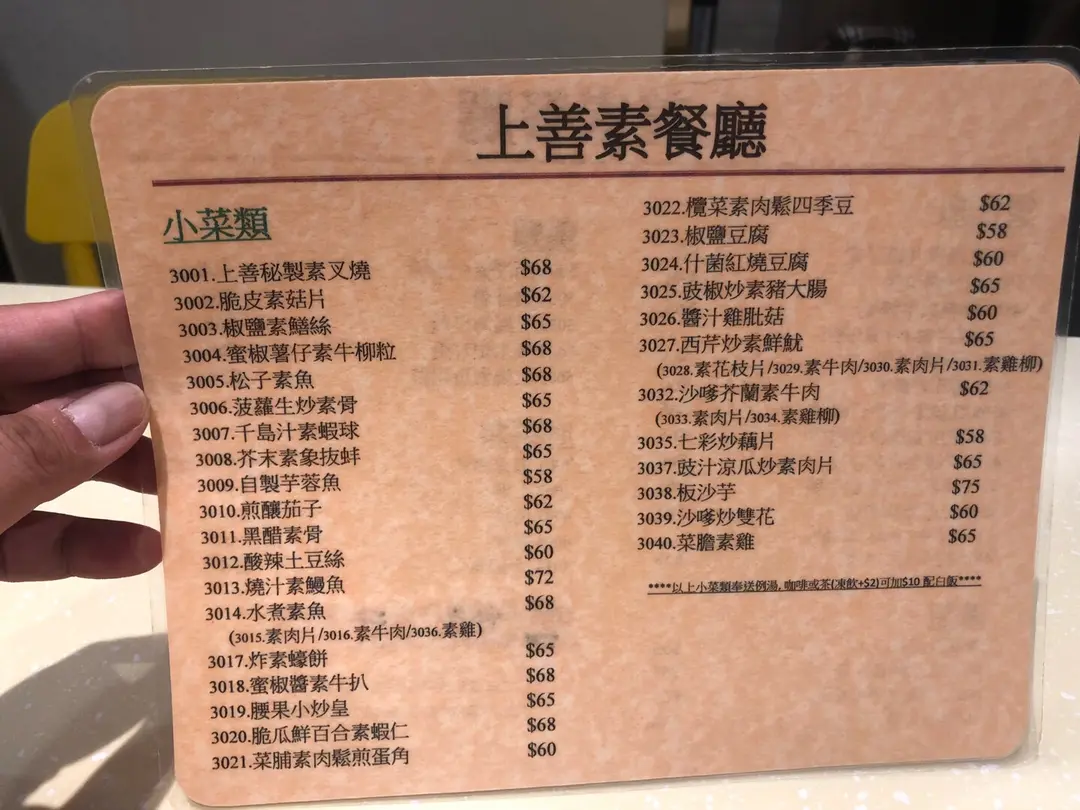 上善素餐廳
小菜類
3001.上善秘製素叉燒 $68
3002.脆皮素菇片 $62
3003.椒鹽素鱔絲 $65
3004.蜜椒薯仔素牛柳粒 $68
3005.松子素魚 $68
3006.菠蘿生炒素骨 $65
3007.千島汁素蝦球 $68
3008.芥末素象拔蚌 $65
3009.自製芋蓉魚 $58
3010.煎釀茄子 $62
3011.黑醋素骨 $65
3012.酸辣土豆絲 $60
3013.燒汁素鰻魚 $72
3014.水煮素魚 $68
(3015.素肉片/3016.素牛肉/3036.素雞)
3017.炸素蠔餅 $65
3018.蜜椒醬素牛扒 $68
3019.腰果小炒皇 $65
3020.脆瓜鮮百合素蝦仁 $68
3021.菜脯素肉鬆煎蛋角 $60
3022.欖菜素肉鬆四季豆 $62
3023.椒鹽豆腐 $58
3024.什菌紅燒豆腐 $60
3025.豉椒炒素豬大腸 $65
3026.醬汁雞肶菇 $60
3027.西芹炒素鮮魷 $65
(3028.素花枝片/3029.素牛肉/3030.素肉片/3031.素雞柳)
3032.沙嗲芥蘭素牛肉 $62
(3033.素肉片/3034.素雞柳)
3035.七彩炒藕片 $58
3037.豉汁涼瓜炒素肉片 $65
3038.板沙芋 $75
3039.沙嗲炒雙花 $60
3040.菜膽素雞 $65
****以上小菜類奉送例湯, 咖啡或茶(凍飲+$2)可加$10 配白飯****